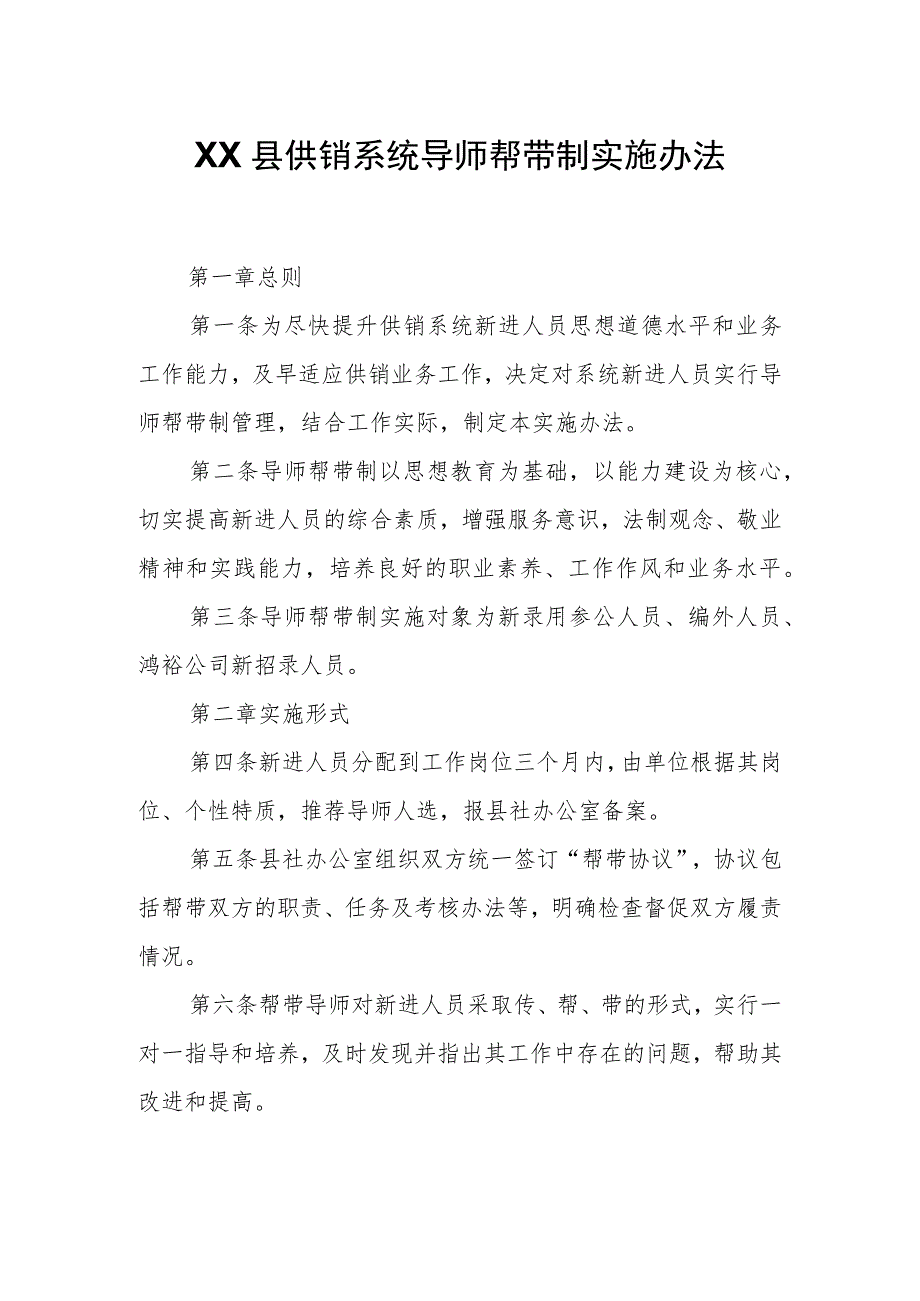 XX县供销系统导师帮带制实施办法
第一章总则
第一条为尽快提升供销系统新进人员思想道德水平和业务
工作能力，及早适应供销业务工作，决定对系统新进人员实行导
师帮带制管理，结合工作实际，制定本实施办法。
第二条导师帮带制以思想教育为基础，以能力建设为核心，
切实提高新进人员的综合素质，增强服务意识，法制观念、敬业
精神和实践能力，培养良好的职业素养、工作作风和业务水平。
第三条导师帮带制实施对象为新录用参公人员、编外人员、
鸿裕公司新招录人员。
第二章实施形式
第四条新进人员分配到工作岗位三个月内，由单位根据其岗
位、个性特质，推荐导师人选，报县社办公室备案。
第五条县社办公室组织双方统一签订“帮带协议”，协议包
括帮带双方的职责、任务及考核办法等，明确检查督促双方履责
情况。
第六条帮带导师对新进人员采取传、帮、带的形式，实行一
对一指导和培养，及时发现并指出其工作中存在的问题，帮助其
改进和提高。